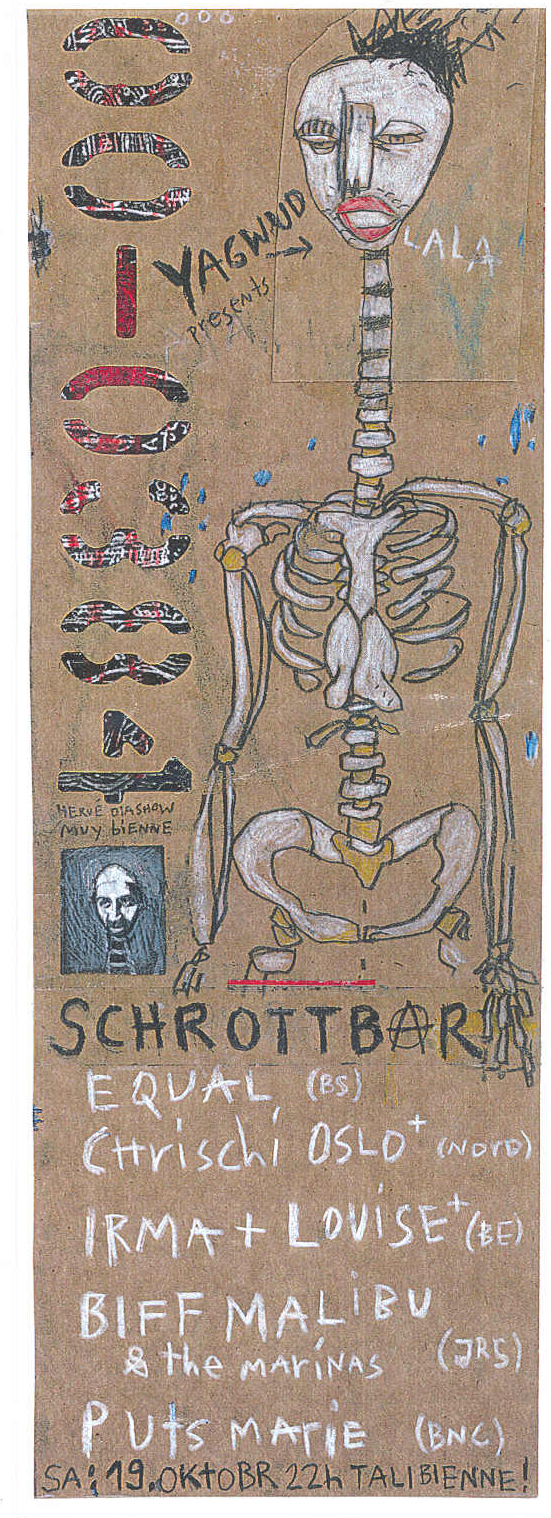 OOO
00-03841
YAGWUD
presents
LALA
HERVÉ DIASHOW
MUY BIENNE
SCHROTTBAR
EQUAL, (BS)
CHrischi OSLO+ (NORD)
IRMA + LOUISE+ (BE)
BIFF MALIBU
& the MARINAS (JRS)
PUts MARIE (BNC)
SA: 19. OKtOBR 22h TALIBIENNE!